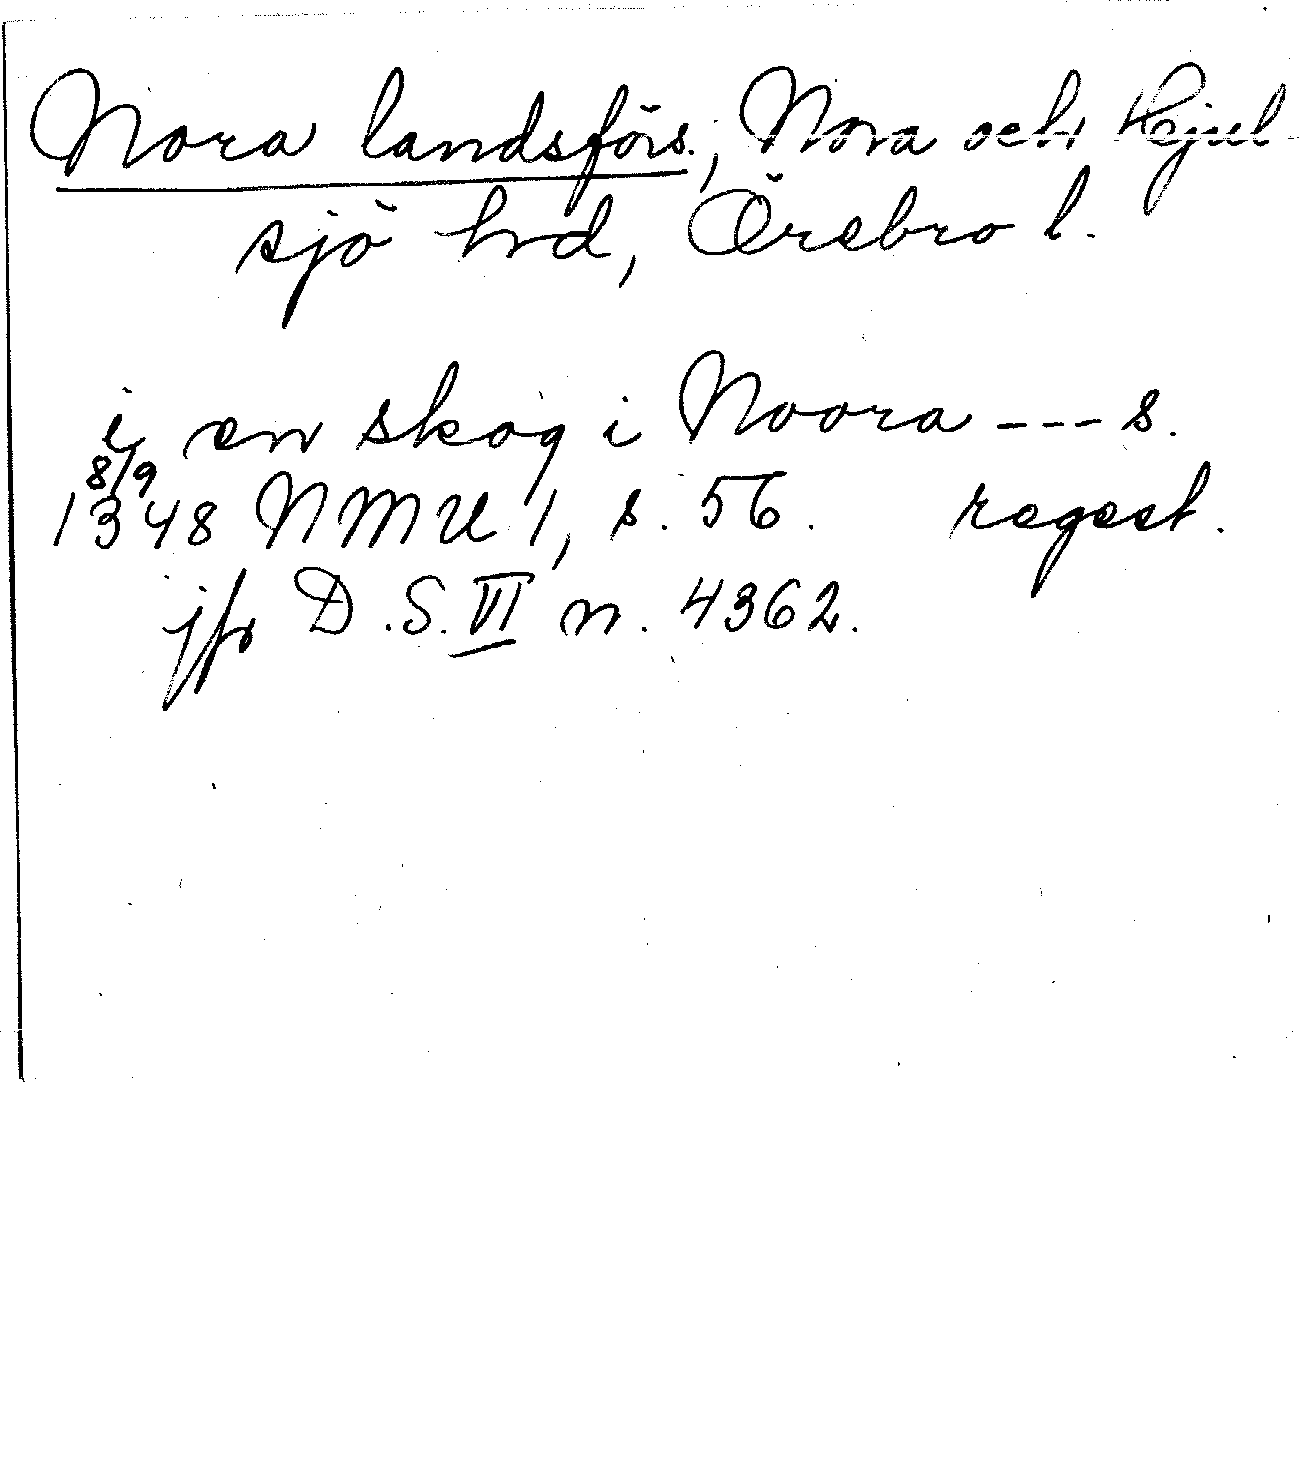 Nora landsförs., Nora och Hjul-
sjö hrd, Örebro l.
i en skog i Noora --- s.
8/9
1348 NMU 1, s. 56. regest.
jfr D.S. VI n. 4362.